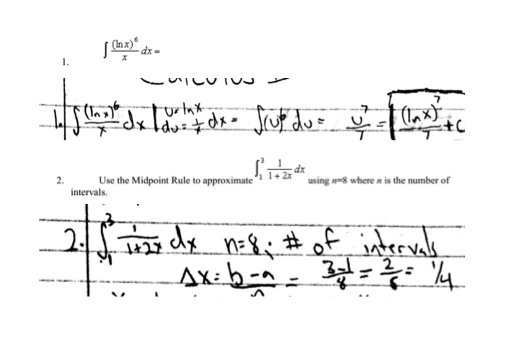 1. ∫ (ln x)^6 / x dx =
1. ∫ (ln x)^6 / x dx | u = ln x du = 1/x dx = ∫(u)^6 du = u^7 / 7 = (ln x)^7 / 7 + C
2. Use the Midpoint Rule to approximate ∫_1^3 1/(1+2x) dx using n=8 where n is the number of
intervals.
2. ∫_1^3 1/(1+2x) dx n=8; # of intervals
Δx = b-a = 3-1/8 = 2/8 = 1/4